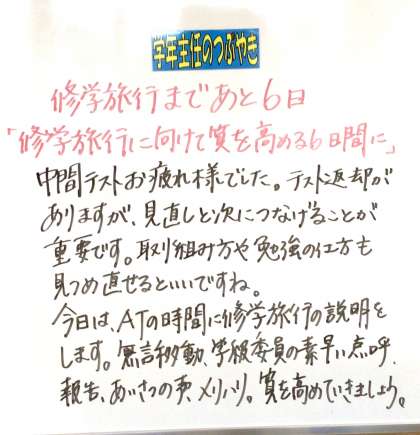 学年主任のつぶやき
修学旅行まであと6日
「修学旅行に向けて質を高める6日間に」
中間テストお疲れ様でした。テスト返却が
ありますが、見直しと次につなげることが
重要です。取り組み方や勉強の仕方も
見つめ直せるといいですね。
今日は、ATの時間に修学旅行の説明を
します。無言移動、学級委員の素早い点呼、
報告、あいさつの声、メリハリ。質を高めていきましょう。